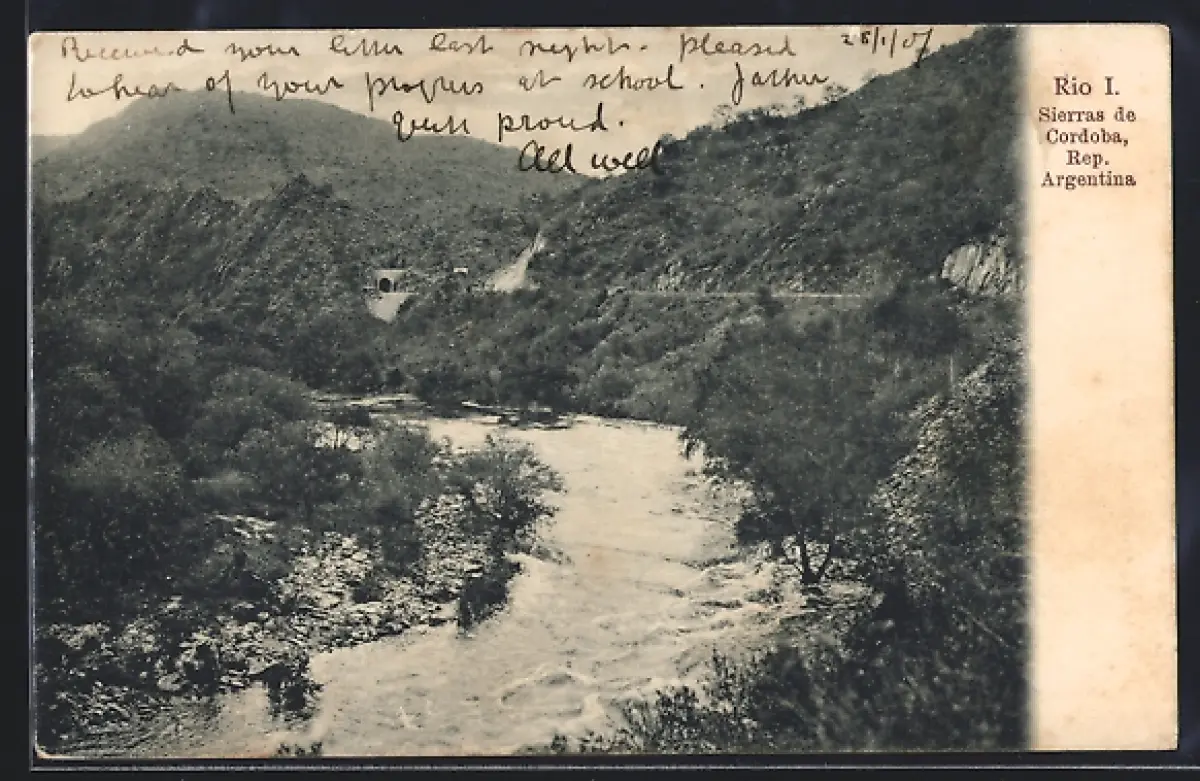 Received your letter last night. pleased 28/1/07
to hear of your progress at school. Father
quite proud.
All well
Rio I.
Sierras de
Cordoba,
Rep.
Argentina